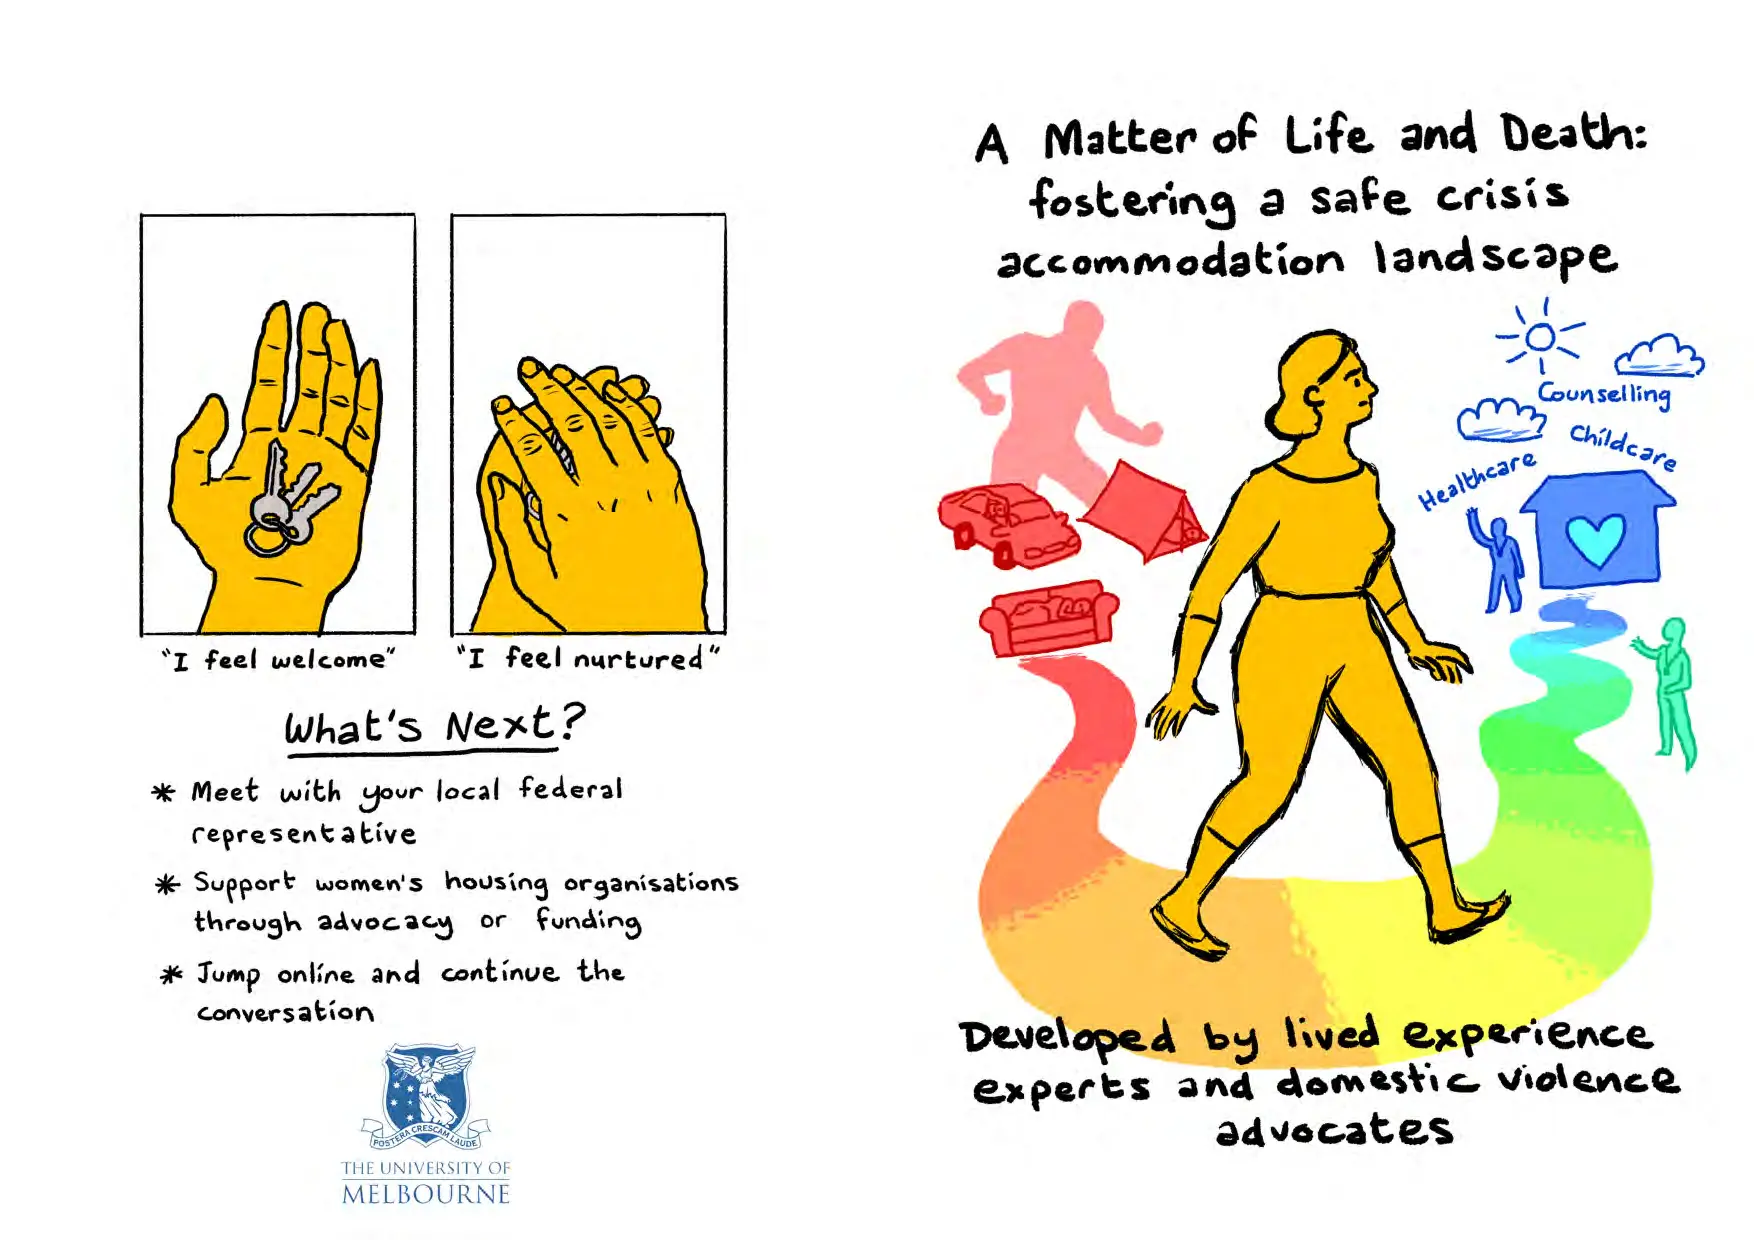 "I feel welcome"
"I feel nurtured"
What's Next?
* Meet with your local federal
representative
* Support women's housing organisations
through advocacy or funding
* Jump online and continue the
conversation
POSTERA CRESCAM LAUDE
THE UNIVERSITY OF
MELBOURNE
A Matter of Life and Death:
fostering a safe crisis
accommodation landscape
Counselling
Childcare
Healthcare
Developed by lived experience
experts and domestic violence
advocates